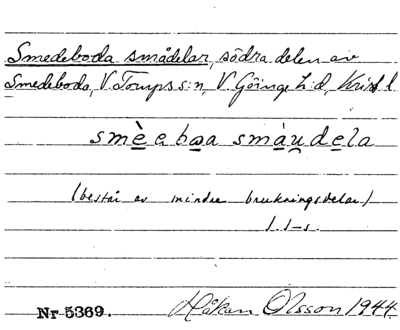 Smedeboda smådelar, södra delen av
Smedeboda, V. Torups s:n, V. Göinge h:d, Krist l
smè̱e̱ ba̱a smàu̯de̱la
(består av mindre brukningsdelar)
1.1-s.
Nr 5369. Håkan Olsson 1944.